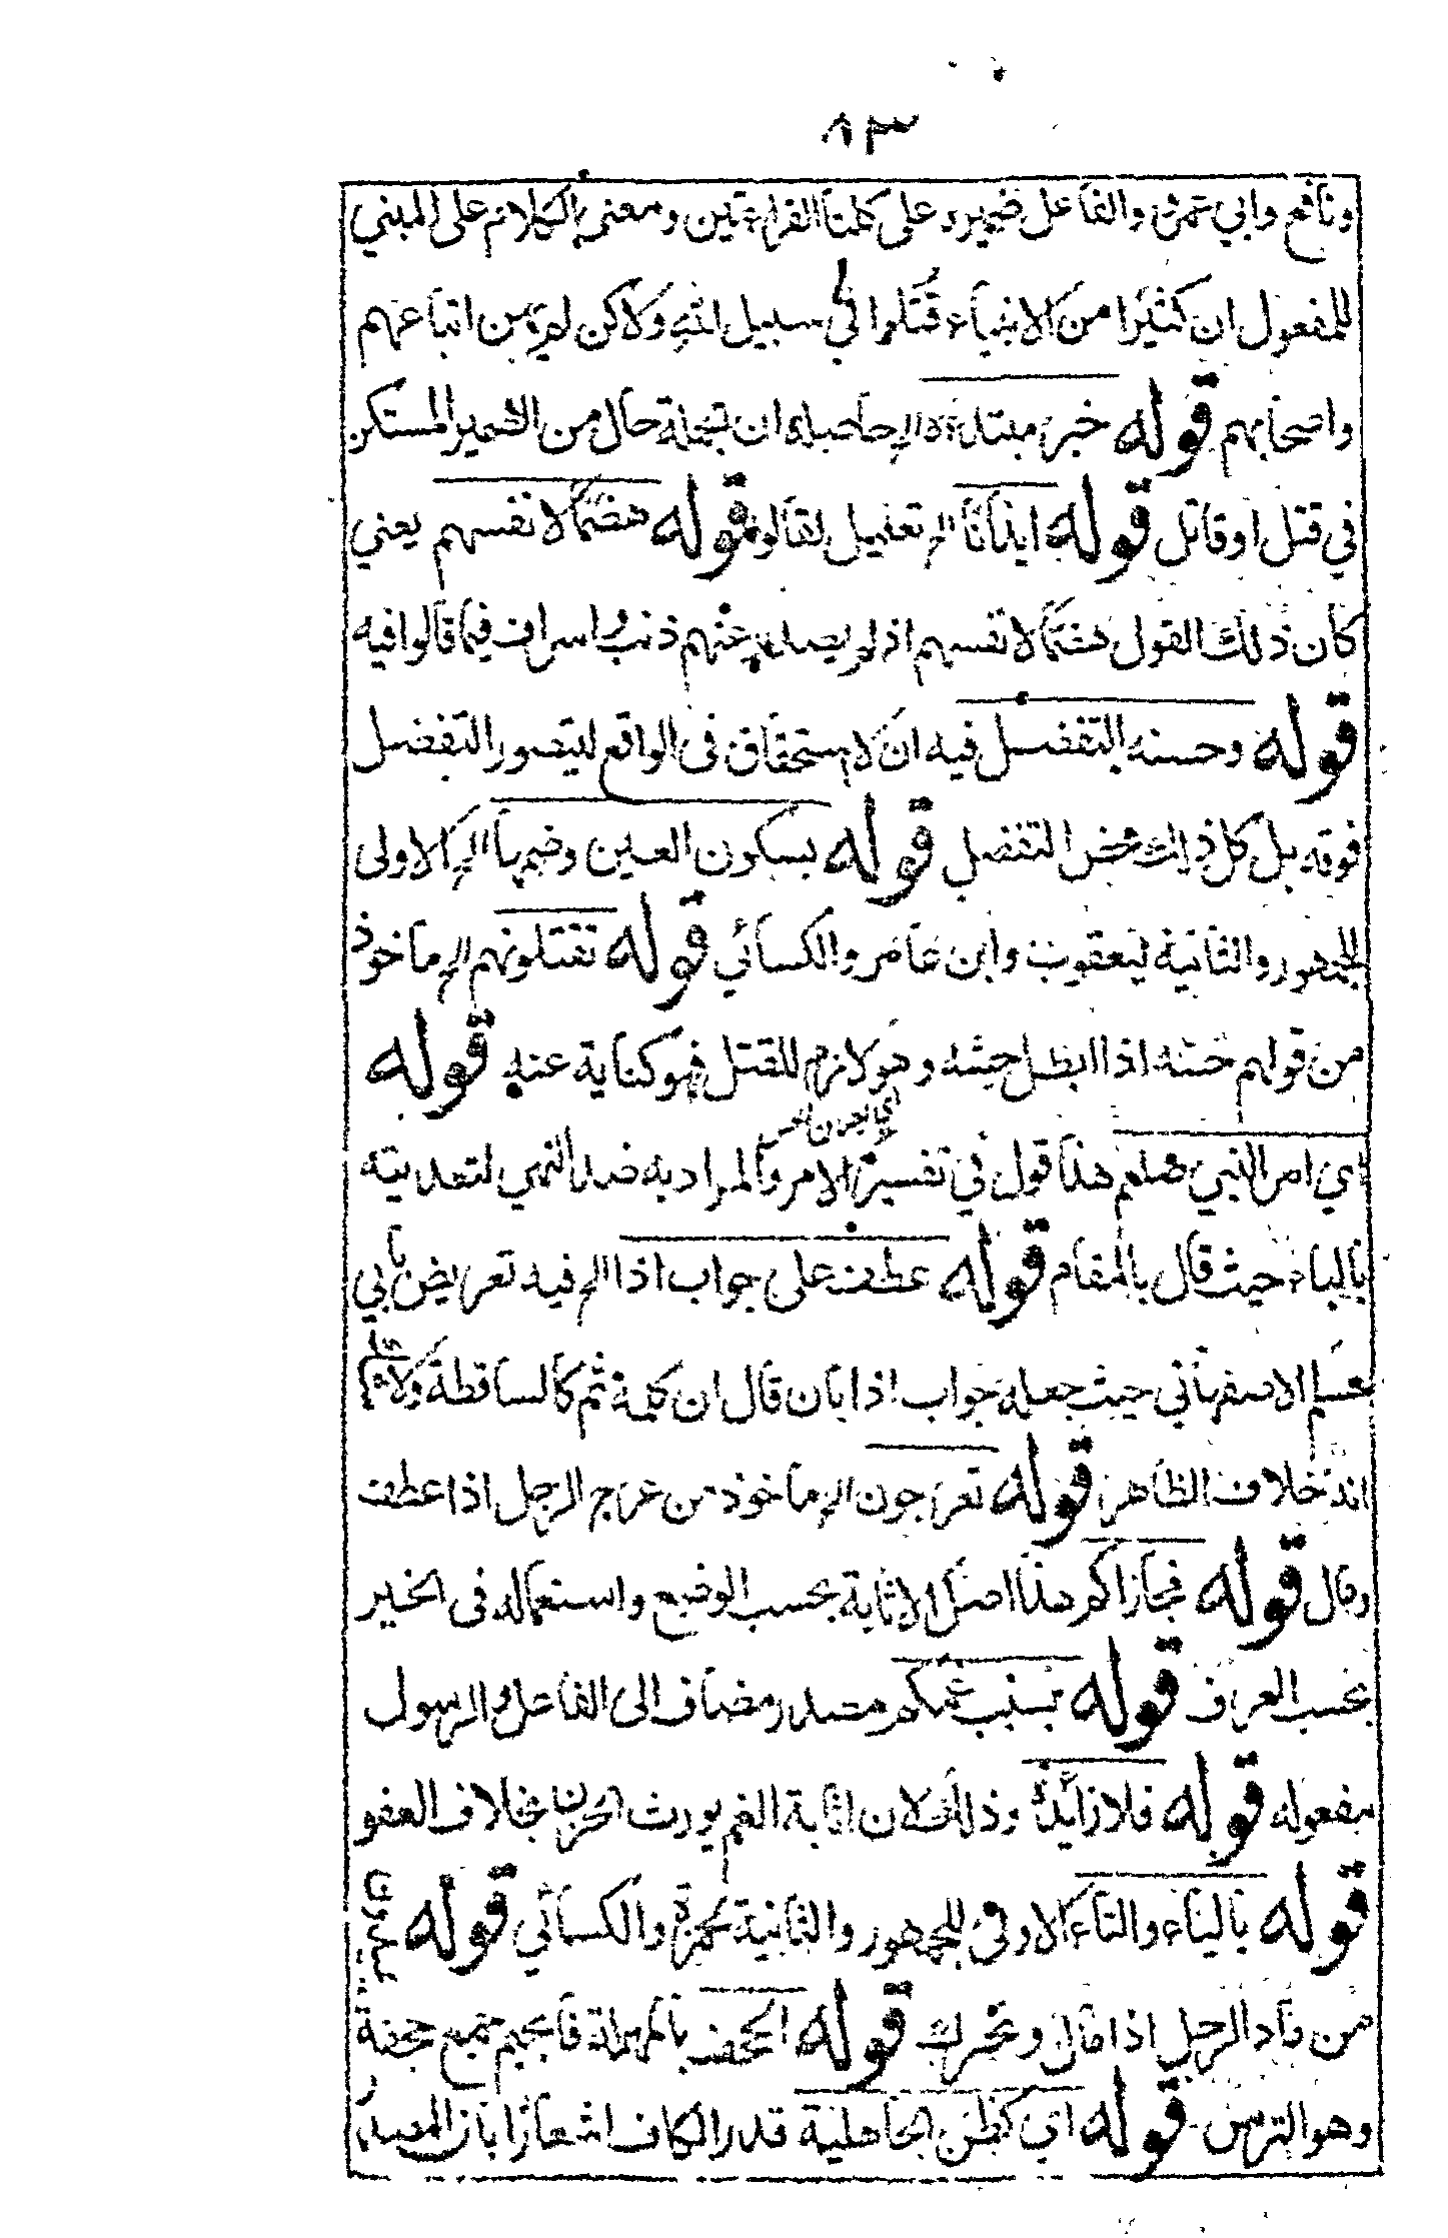 ٨٣
ونافع وابي عمرو والفاعل ضميره على كلتا القراءتين ومعنى الكلام على المبني
للمفعول ان كثيرا من الانبياء قُتلوا في سبيل الله ولاكن لم يهن اتباعهم
واصحابهم قوله خبره مبتدؤه الخ حاصله ان الجملة حال من الضمير المستكن
في قتل او قاتل قوله ايذانا الخ تعليل لقالوا قوله هضما لانفسهم يعني
كان ذلك القول هضما لانفسهم اذ لم يصدر عنهم ذنب واسراف فيما قالوا فيه
قوله وحسنه التفضل فيه ان لا استحقاق فى الواقع ليتصور التفضل
فوقه بل كل ذلك محض التفضل قوله بسكون العين وضمها الخ الاولى
للجمهور والثانية ليعقوب وابن عامر والكسائي قوله تقتلونهم الخ ماخوذ
من قولهم حسّه اذا ابطل حسّه وهو لازم للقتل فهو كناية عنه قوله
اي امر النبي صلعم هذا قول في تفسير الامر والمراد به ضد النهي لتعديته
بالباء حيث قال بالمقام قوله عطف على جواب اذا الخ فيه تعريض بابي
مسلم الاصفهاني حيث جعله جواب اذا بان قال ان كلمة ثم كالساقطة ولا شك
انه خلاف الظاهر قوله تعرجون الخ ماخوذ من عرج الرجل اذا عطف
وقال قوله فجازاكم هذا اصل الاثابة بحسب الوضع واستعماله فى الخير
بحسب العرف قوله بسبب غمكم مصدر مضاف الى الفاعل والرسول
مفعوله قوله فلا زائدة وذلك لان اثابة الغم يورث الحزن بخلاف العفو
قوله بالياء والتاء الاولى للجمهور والثانية لحمزة والكسائي قوله
من ماد الرجل اذا مال وتحرك قوله الحجف بالمهملة فالجيم جمع حجفة
وهو الترس قوله اي كظن الجاهلية قدر الكاف اشعارا بان المصدر